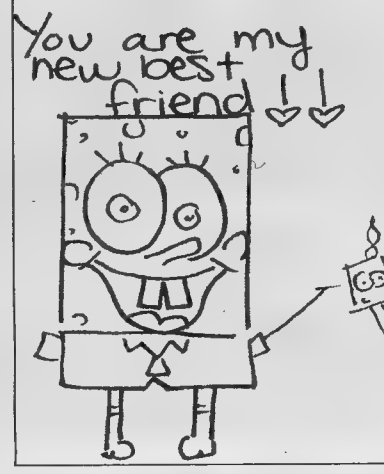 You are my
new best
friend !!